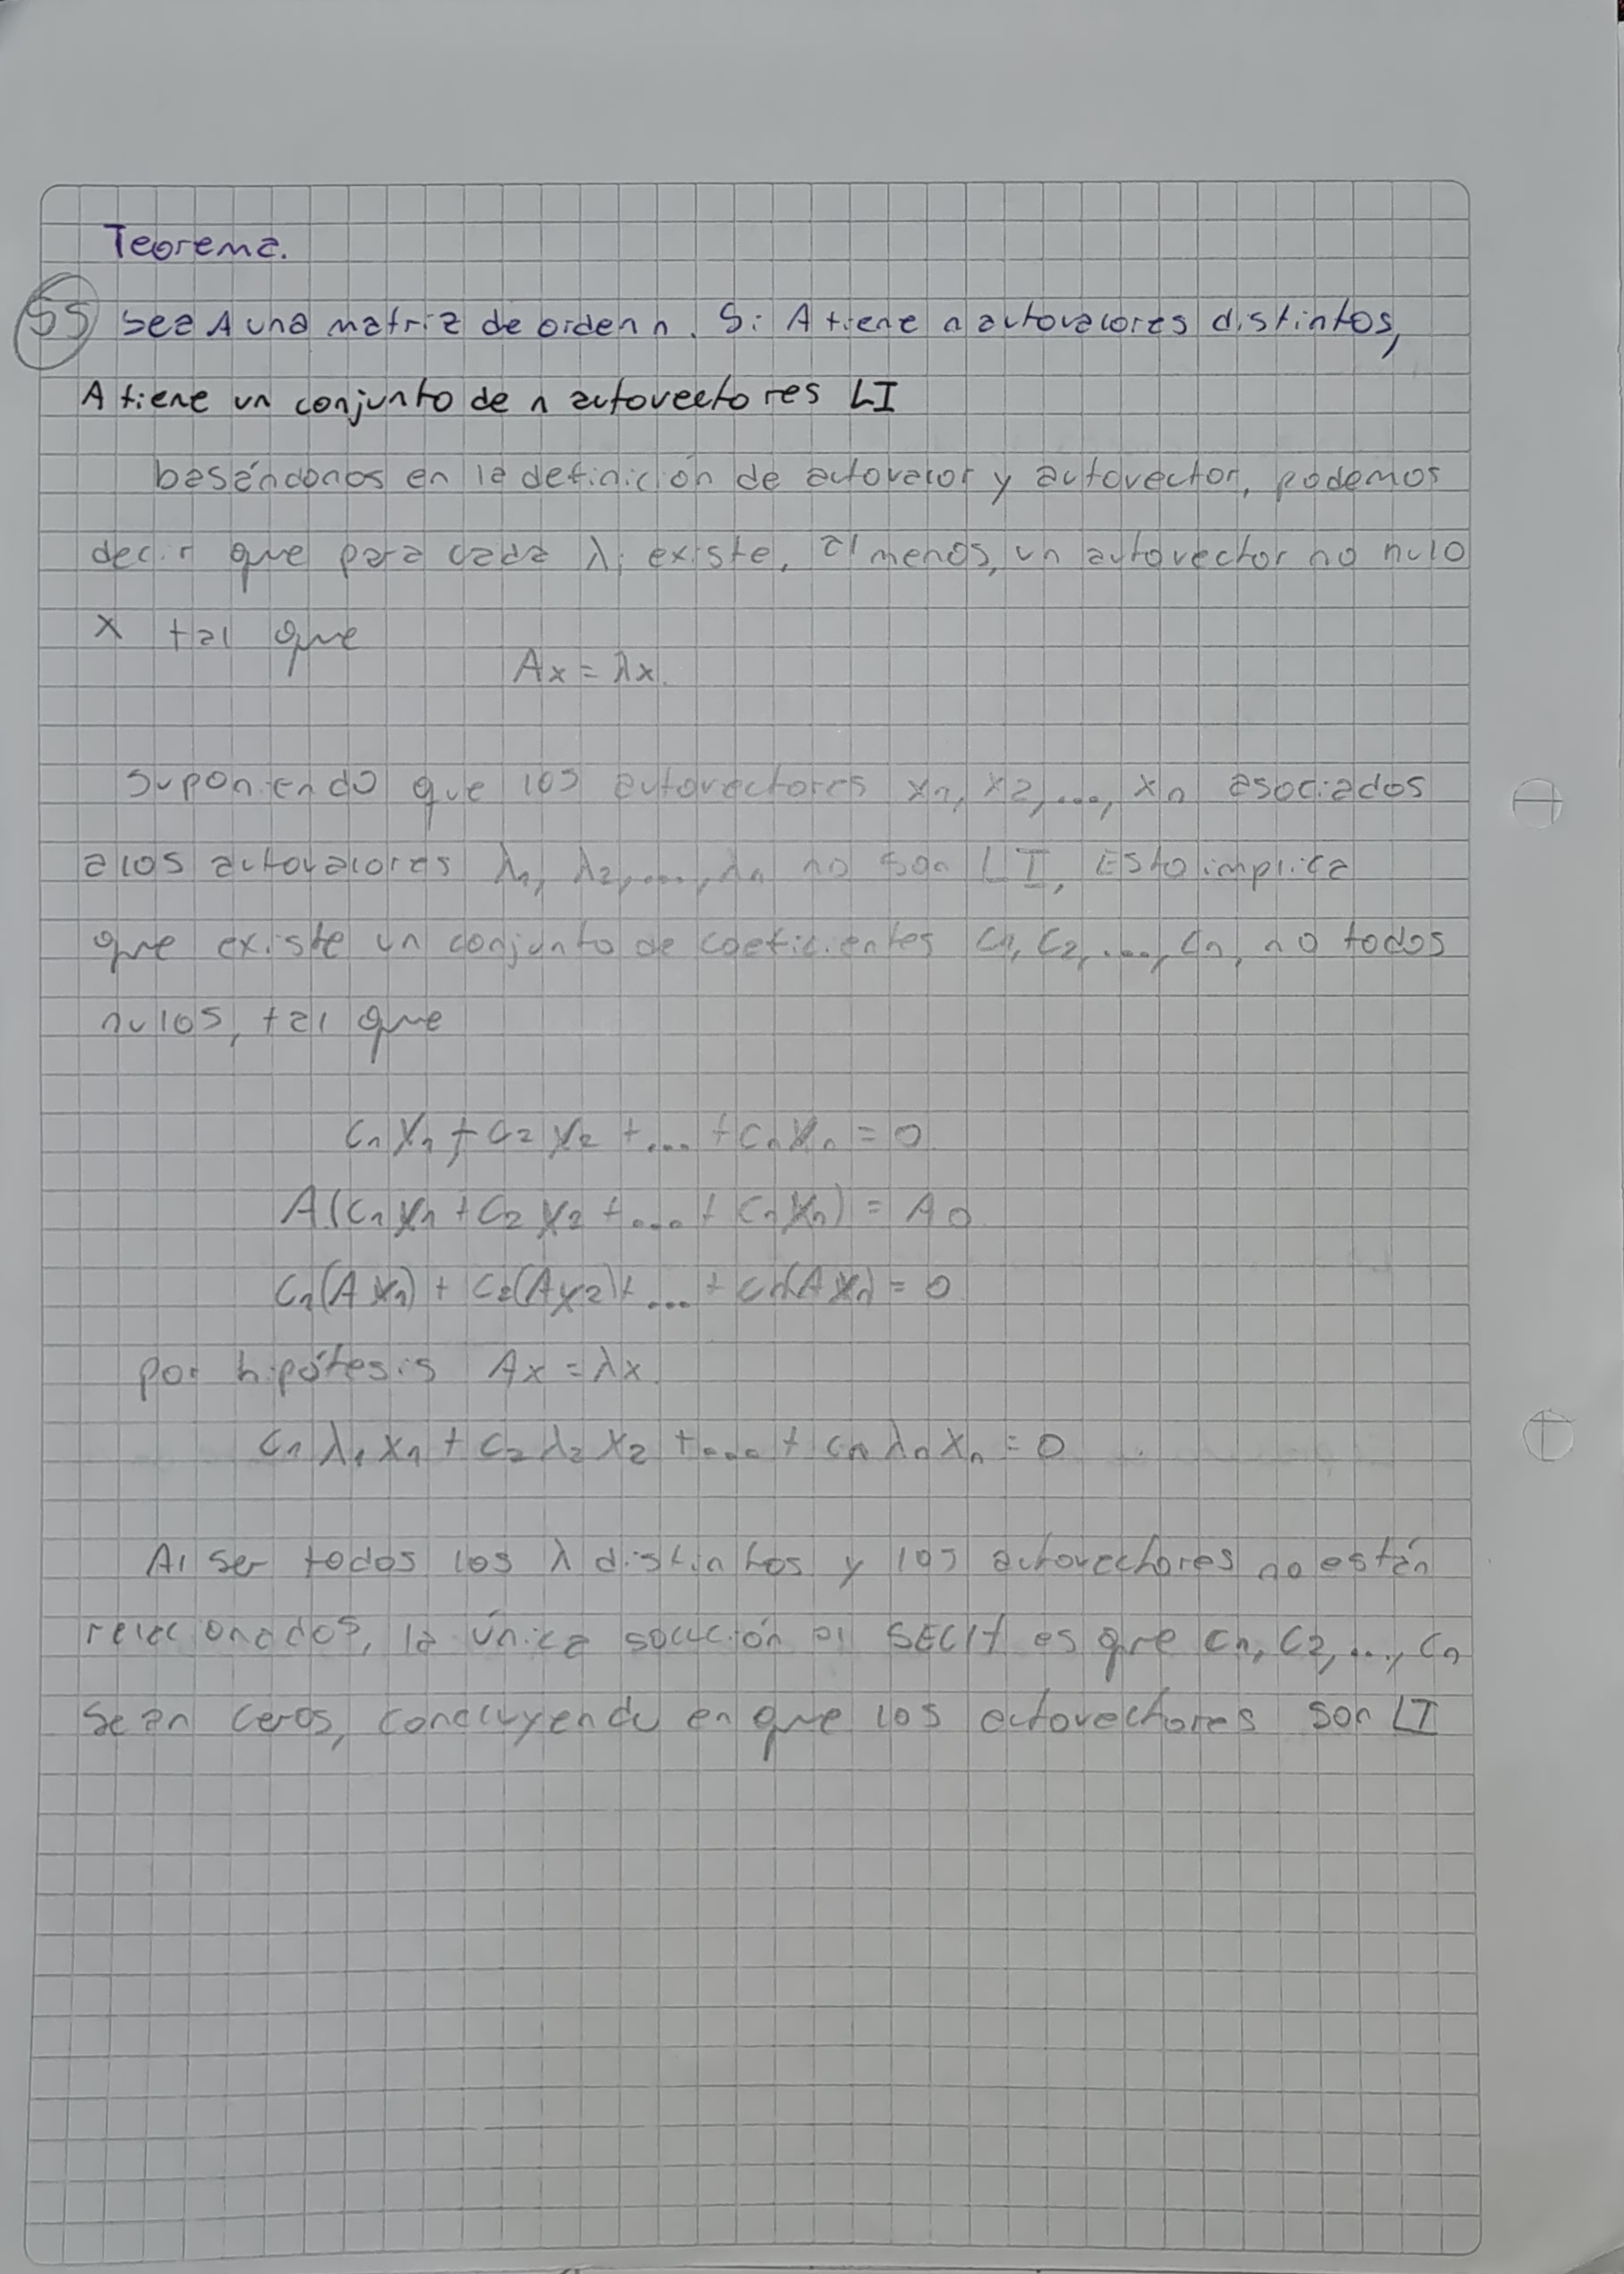 Teorema.
55 Sea A una matriz de orden n. Si A tiene n autovalores distintos,
A tiene un conjunto de n autovectores LI
basándonos en la definición de autovalor y autovector, podemos
decir que para cada λi existe, al menos, un autovector no nulo
x tal que
Ax = λx.
Suponiendo que los autovectores x1, x2, ..., xn asociados
a los autovalores λ1, λ2, ..., λn no son LI, Esto implica
que existe un conjunto de coeficientes c1, c2, ..., cn, no todos
nulos, tal que
c1 x1 + c2 x2 + ... + cn xn = 0
A(c1 x1 + c2 x2 + ... + cn xn) = A0
c1(Ax1) + c2(Ax2) + ... + cn(Axn) = 0
por hipótesis Ax = λx.
c1 λ1 x1 + c2 λ2 x2 + ... + cn λn xn = 0
Al ser todos los λ distintos y los autovectores no están
relacionados, la única solución al es que c1, c2, ..., cn
sean ceros, concluyendo en que los autovectores son LI